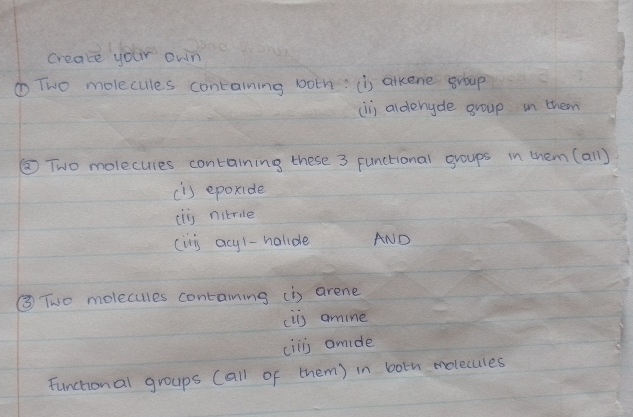 create your own
① Two molecules containing both : (i) alkene group
(ii) aldehyde group in them
② Two molecules containing these 3 functional groups in them (all)
(i) epoxide
(ii) nitrile
(iii) acyl-halide AND
③ Two molecules containing (i) arene
(ii) amine
(iii) amide
Functional groups (all of them) in both molecules